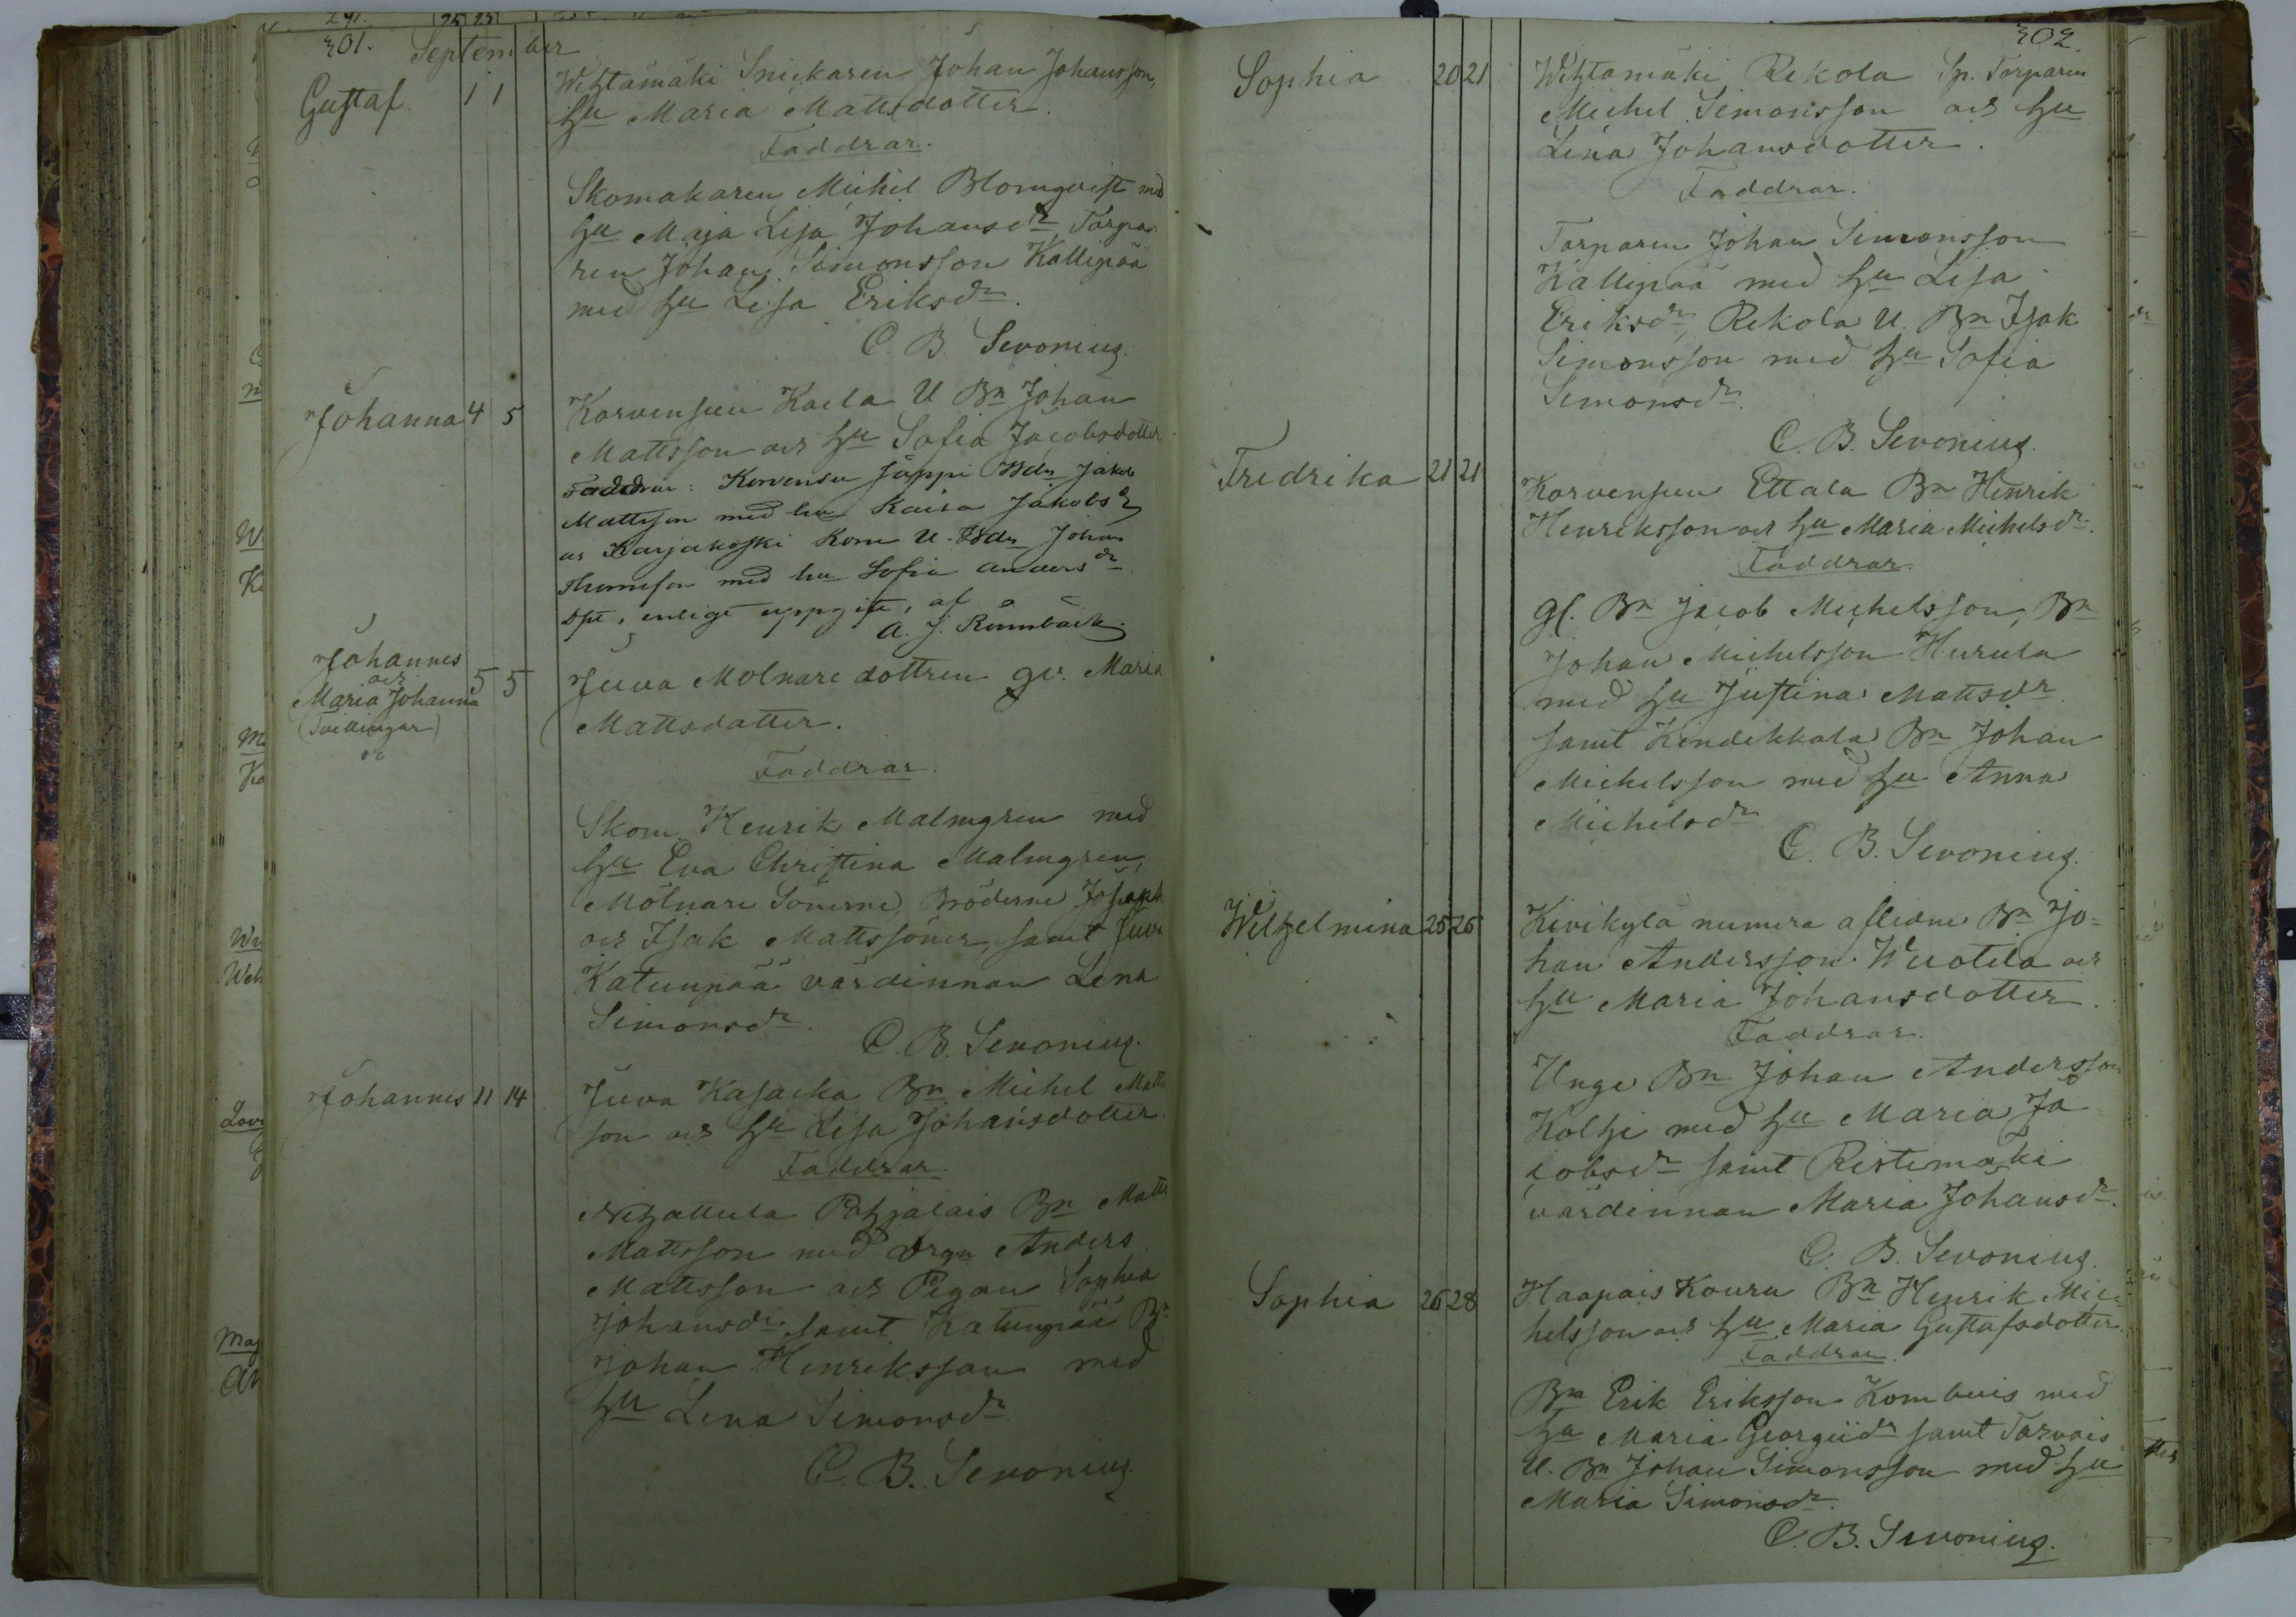 301.
September
Gustaf. 1 1
Wehtämäki Snickaren Johan Johansson,
hu Maria Mattsdotter.
Faddrar.
Skomakaren Michel Blomqvist med
hu Maja Lisa Johansdr, Torpa-
ren Johan Simonsson Kallipää
med hu Lisa Eriksdr.
C. B. Sevonius.
Johanna 4 5
Korvensuu Kaela U Bn Johan
Mattsson och hu Sofia Jacobsdotter
Faddrar: Korvensu Jäppi Bdn Jakob
Mattsson med hu Kaisa Jakobsdr
och Karjakoski U. Bdn Johan
Thomsson med hu Sofia Andersdr
Dpt, enligt uppgift, af
A. J. Rönnbäck.
Johannes
och
Maria Johanna
(Tvillingar)
5 5
Juva Molnare dottren gv. Maria
Mattsdatter.
Faddrar.
Skom. Henrik Malmgren med
hu Eva Christina Malmgren,
Mölnare Sönerne, Bröderne Joseph
och Isak Mattssöner, samt Juva
Katunpää värdinnan Lena
Simonsdr.
C. B. Sevonius.
Johannes 11 14
Juva Kasacka Bn Michel Matts
son och hu Lisa Johansdotter.
Faddrar.
Nihattula Pohjalais Bn Matts
Mattsson med drgn Anders
Mattsson och Pigan Sophia
Johansdr samt Katunpää Bn
Johan Henriksson med
hu Lena Simonsdr.
C. B. Sevonius.
302.
Sophia 20 21
Wehtämäki Rekola Sp. Torparen
Michel Simonsson och hu
Lena Johansdotter.
Faddrar.
Torparen Johan Simonsson
Kallipää med hu Lisa
Eriksdr, Rekola U. Bn Isak
Simonsson med hu Sofia
Simonsdr.
C. B. Sevonius.
Fredrika 21 21
Korvensuu Ettala Bn Henrik
Henriksson och hu Maria Michelsdr.
Faddrar.
Gl. Bn Jacob Michelsson, Bn
Johan Michelsson Hurula
med hu Justina Mattsdr
samt Kendikkala Bn Johan
Michelsson med hu Anna
Michelsdr
C. B. Sevonius.
Wilhelmina 25 26
Kivikylä numera aflidne Bn Jo-
han Andersson Wuotila och
hu Maria Johansdotter.
Faddrar.
Unge Bn Johan Andersson
Kolhi med hu Maria Ja
cobsdr samt Ristimäki
värdinnan Maria Johansdr.
C. B. Sevonius.
Sophia 26 28
Haapais Kouru Bn Henrik Mic-
helsson och hu Maria Gustafsdotter.
Faddrar.
Bn Erik Eriksson Kombuis med
hu Maria Georgiidr samt Tarvais
U. Bn Johan Simonsson med hu
Maria Simonsdr.
C. B. Sevonius.